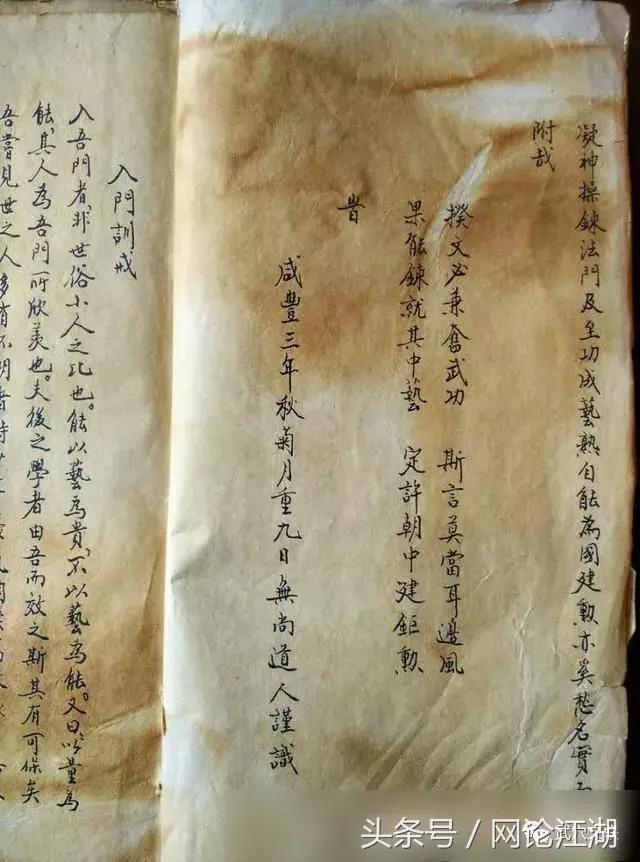 凝神操鍊法門及至功成藝熟自能為國建勲亦奚愁名實不
附哉
揆文必兼奮武功 斯言莫當耳邊風
果能鍊就其中藝 定許朝中建鉅勲
旹
咸豐三年秋菊月重九日無尚道人謹識
入門訓戒
入吾門者，非世俗小人之比也。能以藝為貴，不以藝為能。又曰以量為
能，其人為吾門所欣羨也。夫後之學者由吾而效之斯其有可保矣
吾嘗見世之人多有不明者
头条号／网论江湖